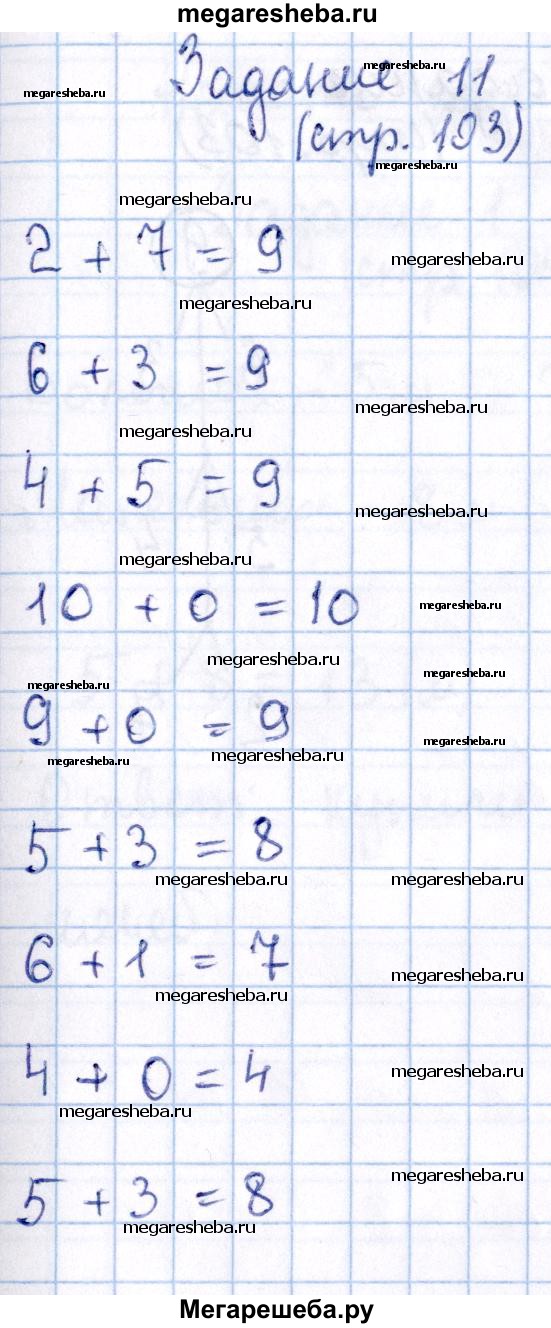 megaresheba.ru
megaresheba.ru
Задание 11
megaresheba.ru
(стр. 103)
megaresheba.ru
megaresheba.ru
2 + 7 = 9
megaresheba.ru
megaresheba.ru
6 + 3 = 9
megaresheba.ru
megaresheba.ru
4 + 5 = 9
megaresheba.ru
megaresheba.ru
10 + 0 = 10
megaresheba.ru
megaresheba.ru
megaresheba.ru
megaresheba.ru
9 + 0 = 9
megaresheba.ru
megaresheba.ru
megaresheba.ru
5 + 3 = 8
megaresheba.ru
megaresheba.ru
6 + 1 = 7
megaresheba.ru
megaresheba.ru
4 + 0 = 4
megaresheba.ru
megaresheba.ru
5 + 3 = 8
megaresheba.ru
megaresheba.ru
Мегарешеба.ру